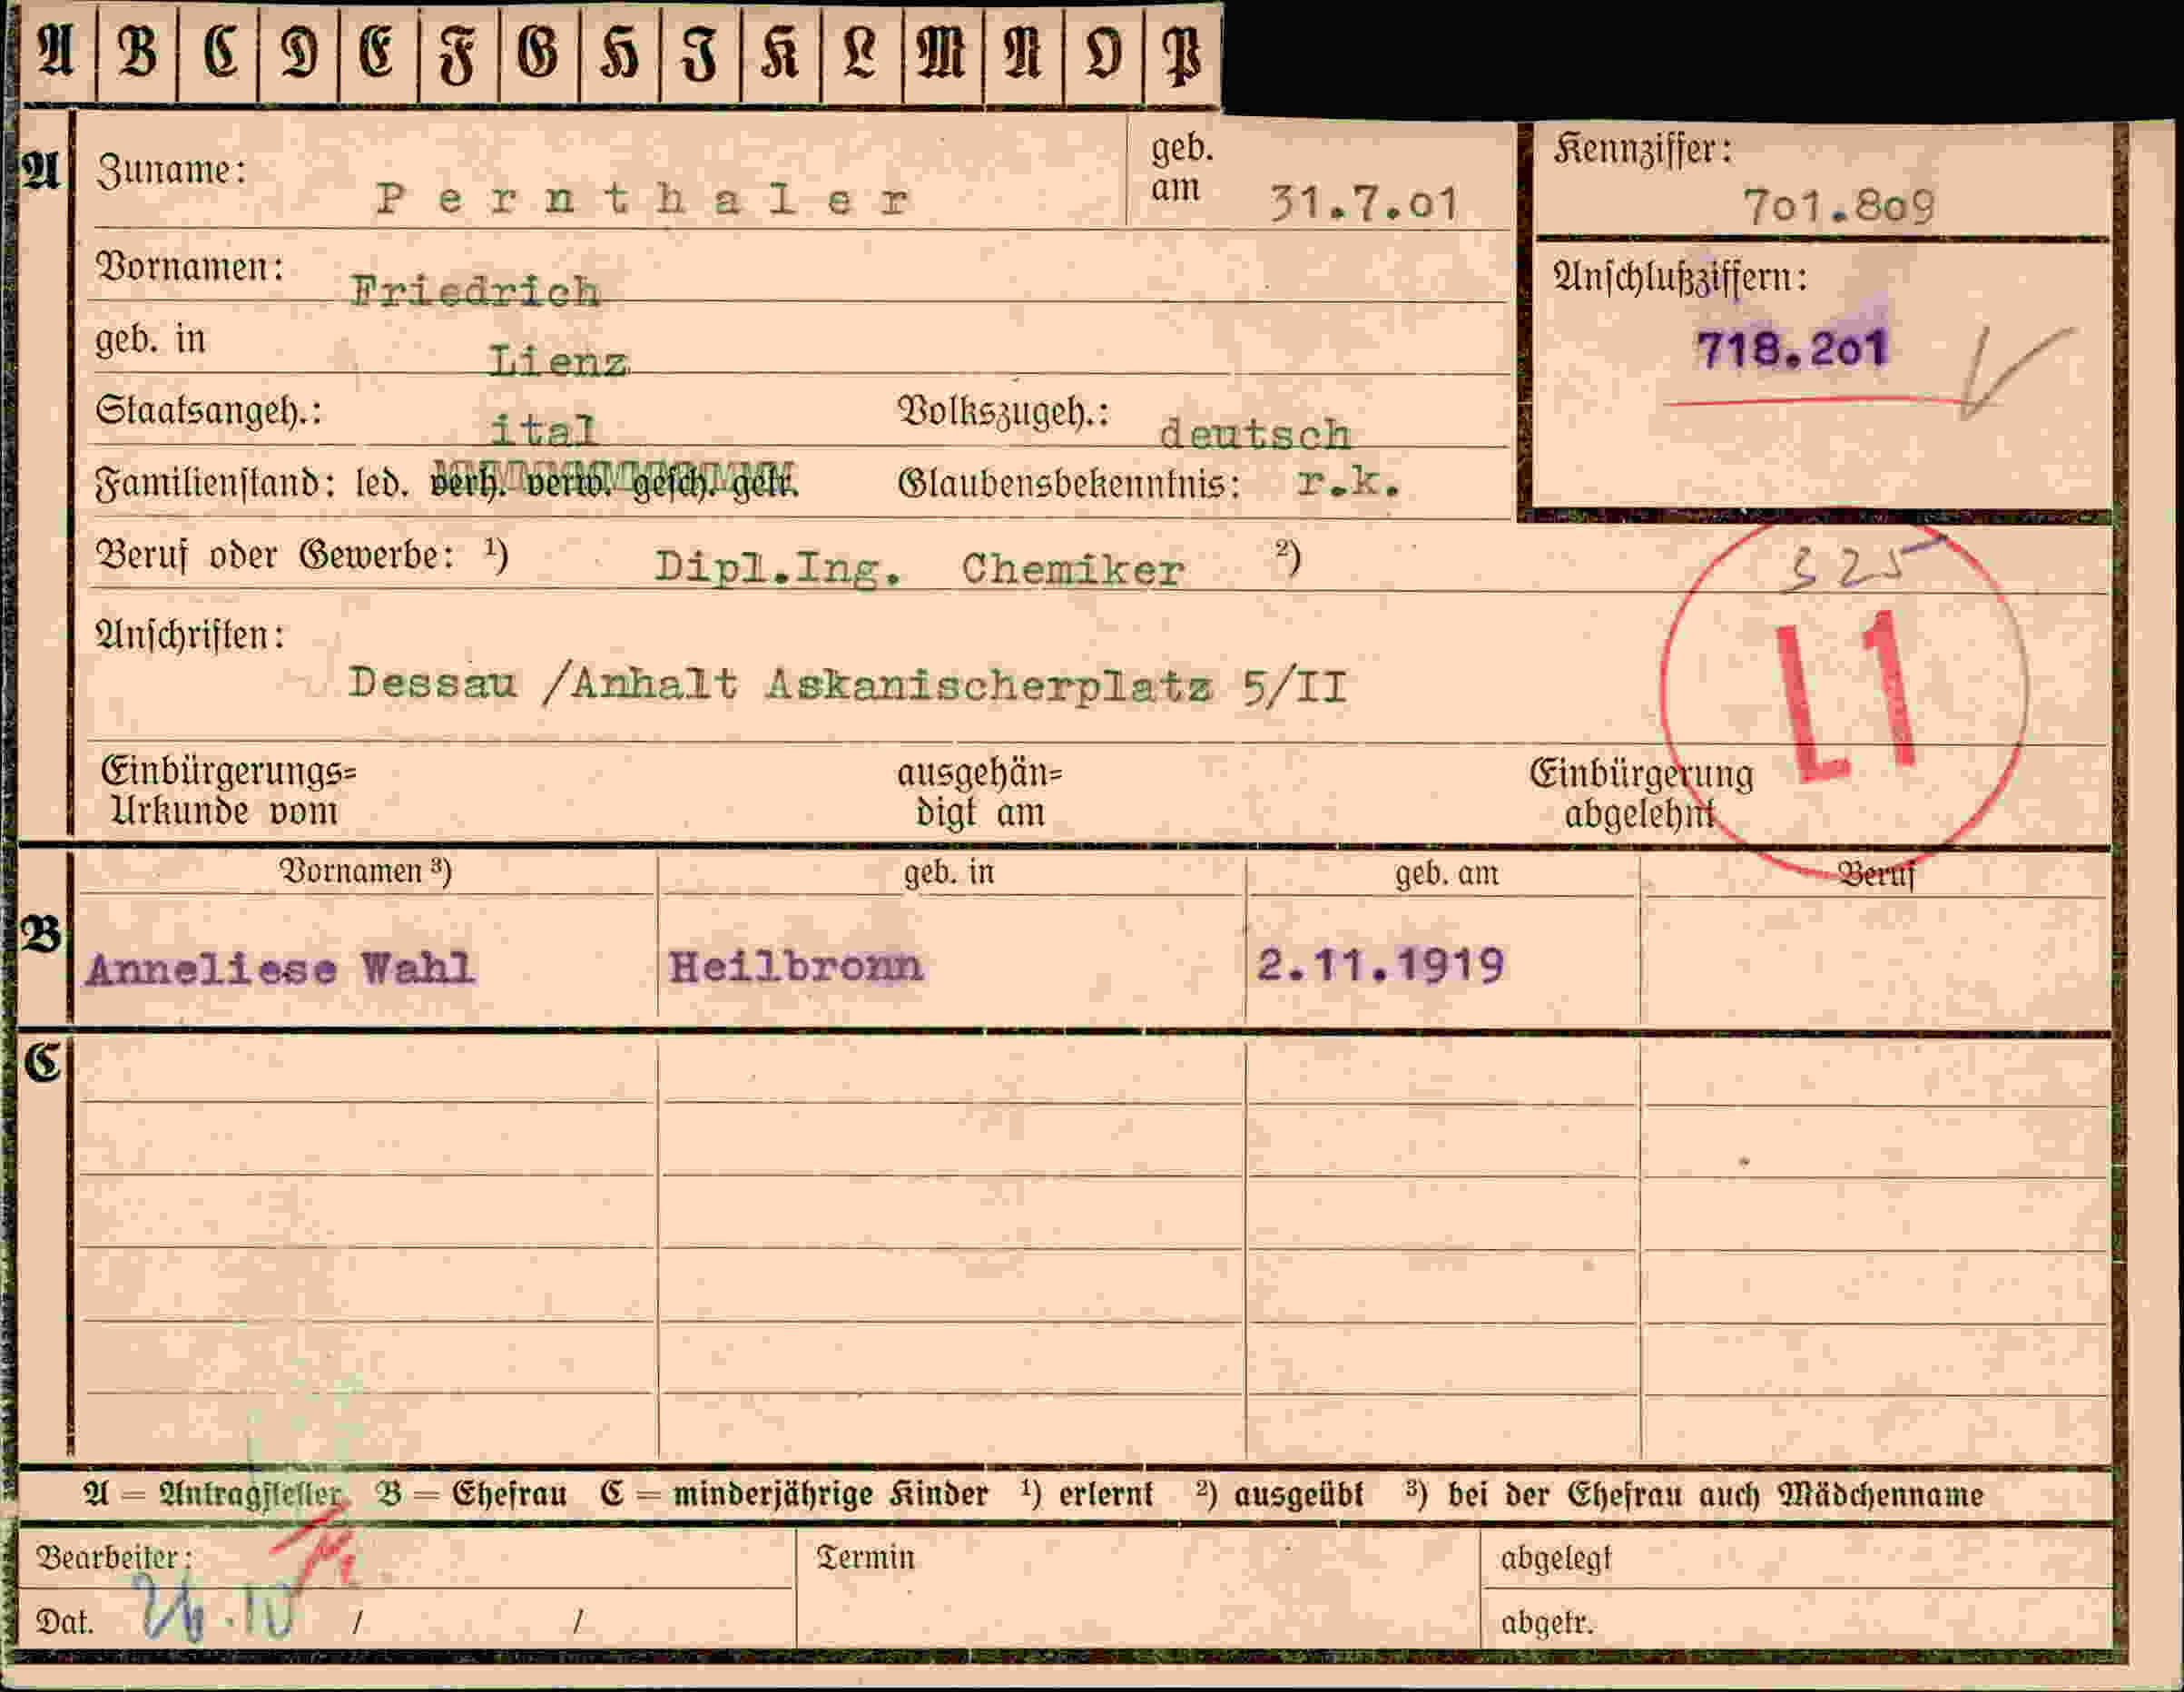 A B C D E F G H I K L M N O P
A
Zuname: Pernthaler geb. am 31.7.01
Kennziffer: 701.809
Vornamen: Friedrich
Anschlußziffern: 718.201
geb. in Lienz
Staatsangeh.: ital Volkszugeh.: deutsch
Familienstand: led. verh. verw. gesch. getr. Glaubensbekenntnis: r.k.
Beruf oder Gewerbe: ¹) Dipl.Ing. Chemiker ²)
325
L1
Anschriften:
Dessau /Anhalt Askanischerplatz 5/II
Einbürgerungs= Urkunde vom ausgehän= digt am Einbürgerung abgelehnt
B
Vornamen ³) geb. in geb. am Beruf
Anneliese Wahl Heilbronn 2.11.1919
C
A = Antragsteller B = Ehefrau C = minderjährige Kinder ¹) erlernt ²) ausgeübt ³) bei der Ehefrau auch Mädchenname
Bearbeiter: Termin abgelegt
Dat. 26.IV / / abgetr.